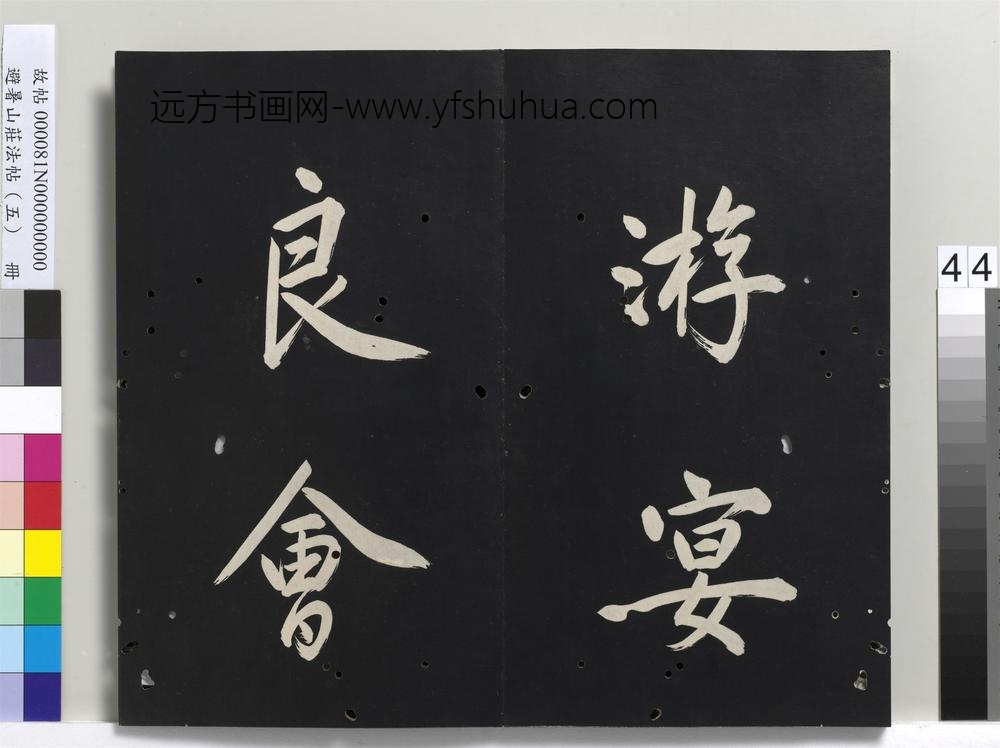 故帖 000081N000000000
避暑山莊法帖（五） 冊
远方书画网-www.yfshuhua.com
游宴
良會
44